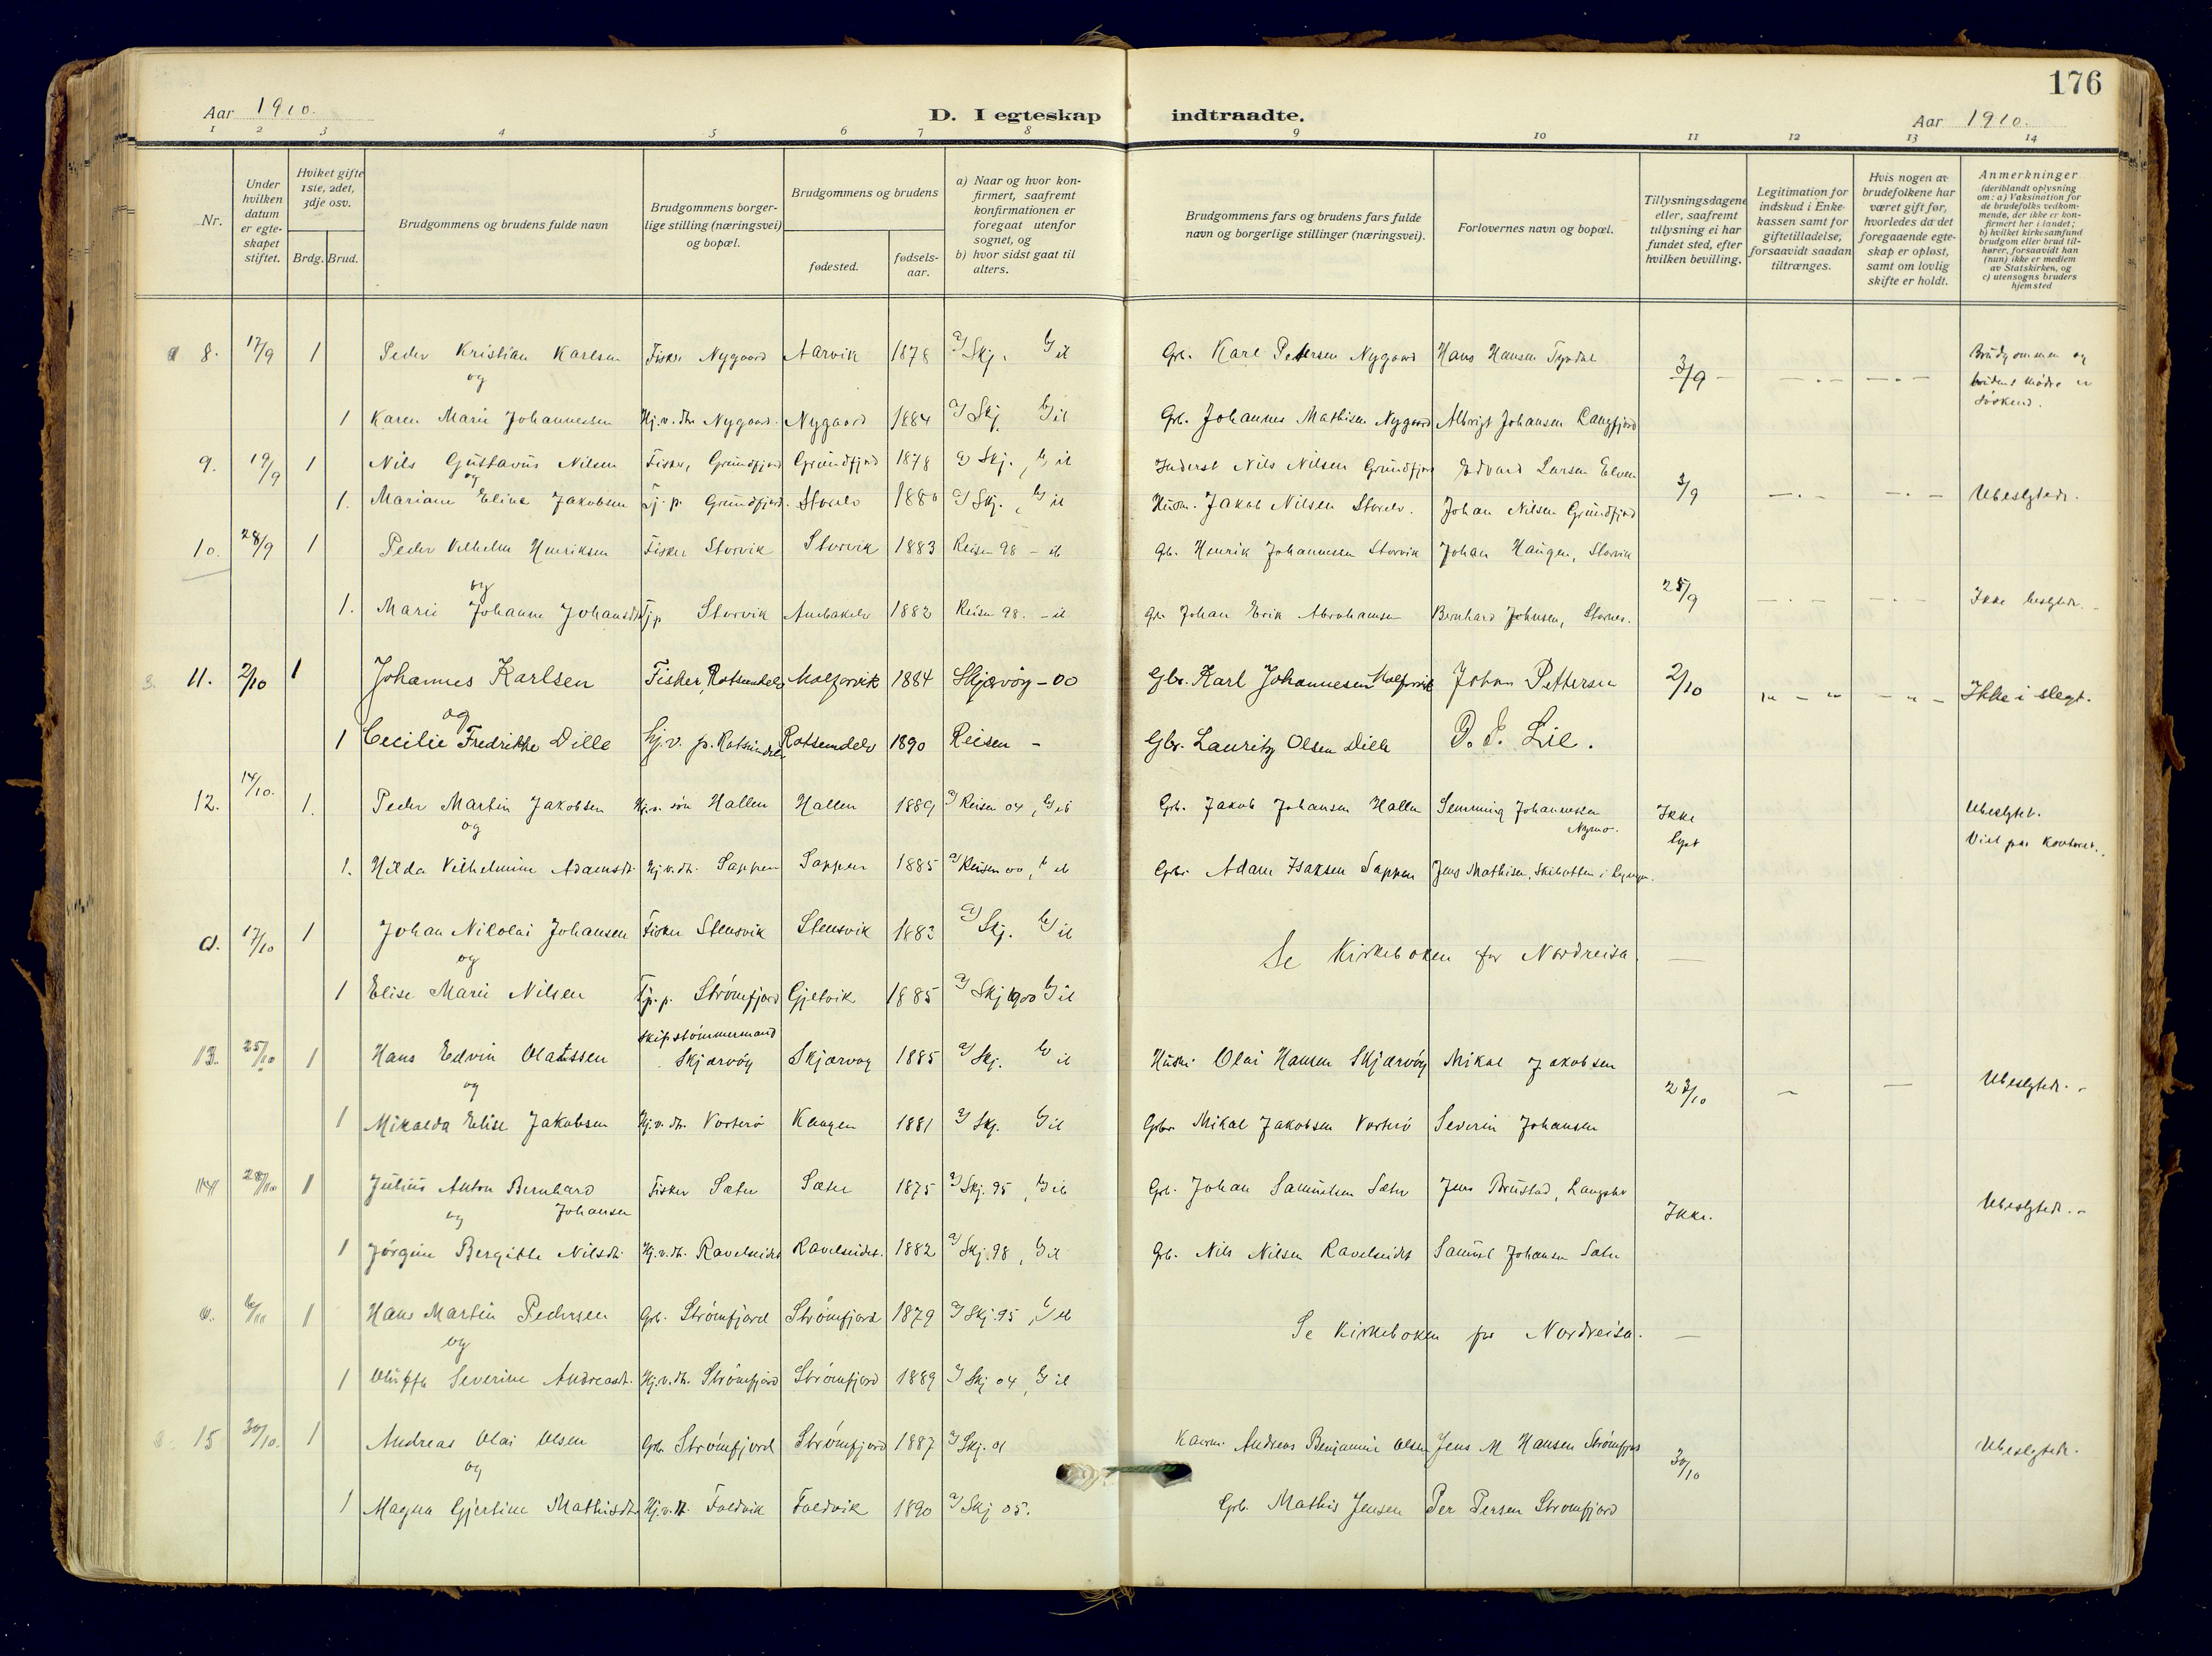 176
Aar 1910.
D. I egteskap indtraadte.
Aar 1910.
1 2 3 4 5 6 7 8 9 10 11 12 13 14
Nr.
Under hvilken datum er egteskapet stiftet.
Hvilket gifte 1ste, 2det, 3dje osv.
Brdg. Brud.
Brudgommens og brudens fulde navn
Brudgommens borgerlige stilling (næringsvei) og bopæl.
Brudgommens og brudens
fødested.
fødselsaar.
a) Naar og hvor konfirmert, saafremt konfirmationen er foregaat utenfor sognet, og
b) hvor sidst gaat til alters.
Brudgommens fars og brudens fars fulde navn og borgerlige stillinger (næringsvei).
Forlovernes navn og bopæl.
Tillysningsdagene eller, saafremt tillysning ei har fundet sted, efter hvilken bevilling.
Legitimation for indskud i Enkekassen samt for giftetilladelse, forsaavidt saadan tiltrænges.
Hvis nogen av brudefolkene har været gift før, hvorledes da det foregaaende egteskap er opløst, samt om lovlig skifte er holdt.
Anmerkninger (deriblandt oplysning om: a) Vaksination for de brudefolks vedkommende, der ikke er konfirmert her i landet; b) hvilket kirkesamfund brudgom eller brud tilhører, forsaavidt han (hun) ikke er medlem av Statskirken, og c) utensogns bruders hjemsted
8. 17/9 1 Peder Kristian Karlsen Fisker Nygaard Aarvik 1878 a) Skj. b) il Grb. Karl Petersen Nygaard Hans Hansen 3/9 Brudgommen og brudens mødre er søskend.
og
1 Karen Marie Johannessen Hj.v.dtr. Nygaard. Nygaard 1884 a) Skj b) il Grb. Johannes Mathisen Nygaard Albrigt Johansen Langfjord
9. 19/9 1 Nils Gustavus Nilsen Fisker, Grundfjord Grundfjord 1878 a) Skj., b) il Inderst Nils Nilsen Grundfjord Edvard Larsen Elven 3/9 Ubeslgtede.
og
1. Mariane Eline Jakobsen Tj. p. Grundfjord. Storelv 1880 a) Skj., b) il Husm. Jakob Nilsen Storelv. Johan Nilsen Grundfjord
10. 28/9 1 Peder Vilhelm Henriksen Fisker Storvik Storvik 1883 Reisen 98 - il Gb. Henrik Johannessen Storvik Johan Haugen, Storvik 25/9 Ikke beslgtede.
og
1. Marie Johanne Johansdtr Tj p Storvik 1882 Reisen 98. - il Gb. Johan Erik Abrahamsen Bernhard Johnsen, Stornes.
11. 2/10 1 Johannes Karlsen Fisker, Rotsundelv Molforvik 1884 Skjervøy - 00 Gbr. Karl Johannesen Molforvik Johan Pettersen 2/10 Ikke i slegt.
og
1 Cecilie Fredrikke Dille hj.v. p. Rotsundelv Rotsundelv 1890 Reisen - Gbr. Lauritz Olsen Dille Lie.
12. 14/10. 1. Peder Martin Jakobsen Hj.v. søn Hallen Hallen 1889 a) Reisen 04, b) il Grb. Jakob Johansen Hallen Semming Johannessen Nymo. Ikke lyst Ubeslgtet. Viet paa Kontoret.
og
1. Hilda Vilhelmine Adamsdtr. Hj.v.dtr. Sappen Sappen 1885 a) Reisen 00, b il Grbr. Adam Isaksen Sappen Jens Mathisen, Skibotten i Lyngen.
a. 17/10 1 Johan Nikolai Johansen Fisker Stensvik Stensvik 1883 a) Skj. b) il Se Kirkeboken for Nordreisa. —
og
1 Elise Marie Nilsen Tj. p. Strømfjord Gjetvik 1885 a) Skj 1900 b) il
13. 25/10 1 Hans Edvin Olaissen skipstømmermand Skjærvøy Skjærvøy 1885 a) Skj. b) il Husm. Olai Hansen Skjærvøy Mikal Jakobsen 23/10 Ubeslgtede.
og
1 Mikalda Elise Jakobsen Hj.v.dtr. Vorterø Kaagen 1881 a) Skj. b) il Grbr. Mikal Jakobsen Vorterø Severin Johansen
14 28/10 1 Julius Anton Bernhard Johansen Fisker Sæter Sæter 1875 a) Skj. 95, b) il Grb. Johan Samuelsen Sæter Jens Brustad, Langslet Ikke. Ubeslgtede.
og
1 Jørgine Bergitte Nilsdtr. Hj.v.dtr. Ravelseidet Ravelseidet. 1882 a) Skj. 98, b) il Grb. Nils Nilsen Ravelseidet Samuel Johansen Sæter
a. 6/11 1 Hans Martin Pedersen Grb. Strømfjord Strømfjord 1879 a) Skj. 95, b) il Se Kirkeboken for Nordreisa. —
og
1 Oluffa Severine Andreasdtr. Hj.v.dtr. Strømfjord Strømfjord 1889 a) Skj 04, b) il
15 30/10. 1 Andreas Olai Olsen Grb. Strømfjord Strømfjord 1887 a) Skj. 01 Andreas Benjamin Olsen Jens M Hansen Strømfjord 30/10 Ubeslgtede.
og
1 Magna Gjertine Mathisdtr. Hj.v.dt. Foldvik Foldvik 1890 a) Skj 05. Grb. Mathis Jensen Per Persen Strømfjord